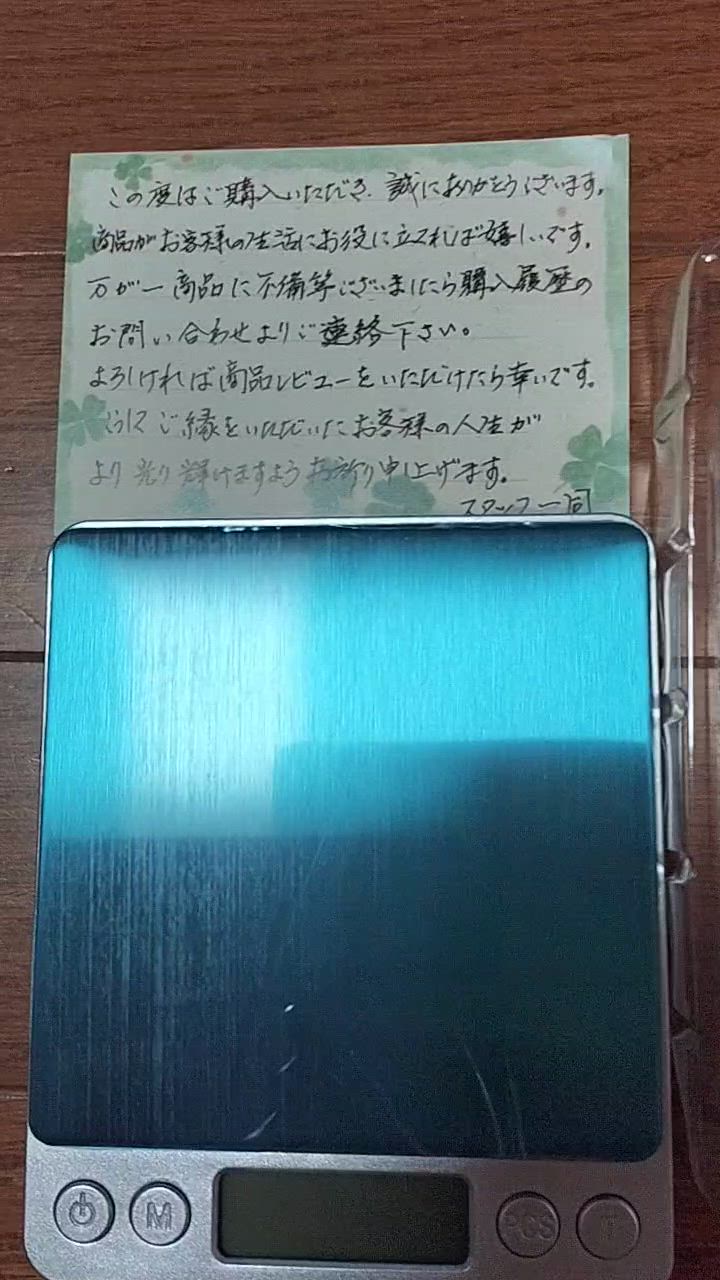 この度はご購入いただき、誠にありがとうございます。
商品がお客様の生活にお役に立てれば嬉しいです。
万が一商品に不備等ございましたら購入履歴の
お問い合わせよりご連絡下さい。
よろしければ商品レビューをいただけたら幸いです。
ご縁をいただいたお客様の人生が
より光り輝けますようお祈り申し上げます。
スタッフ一同
M
PCS
T